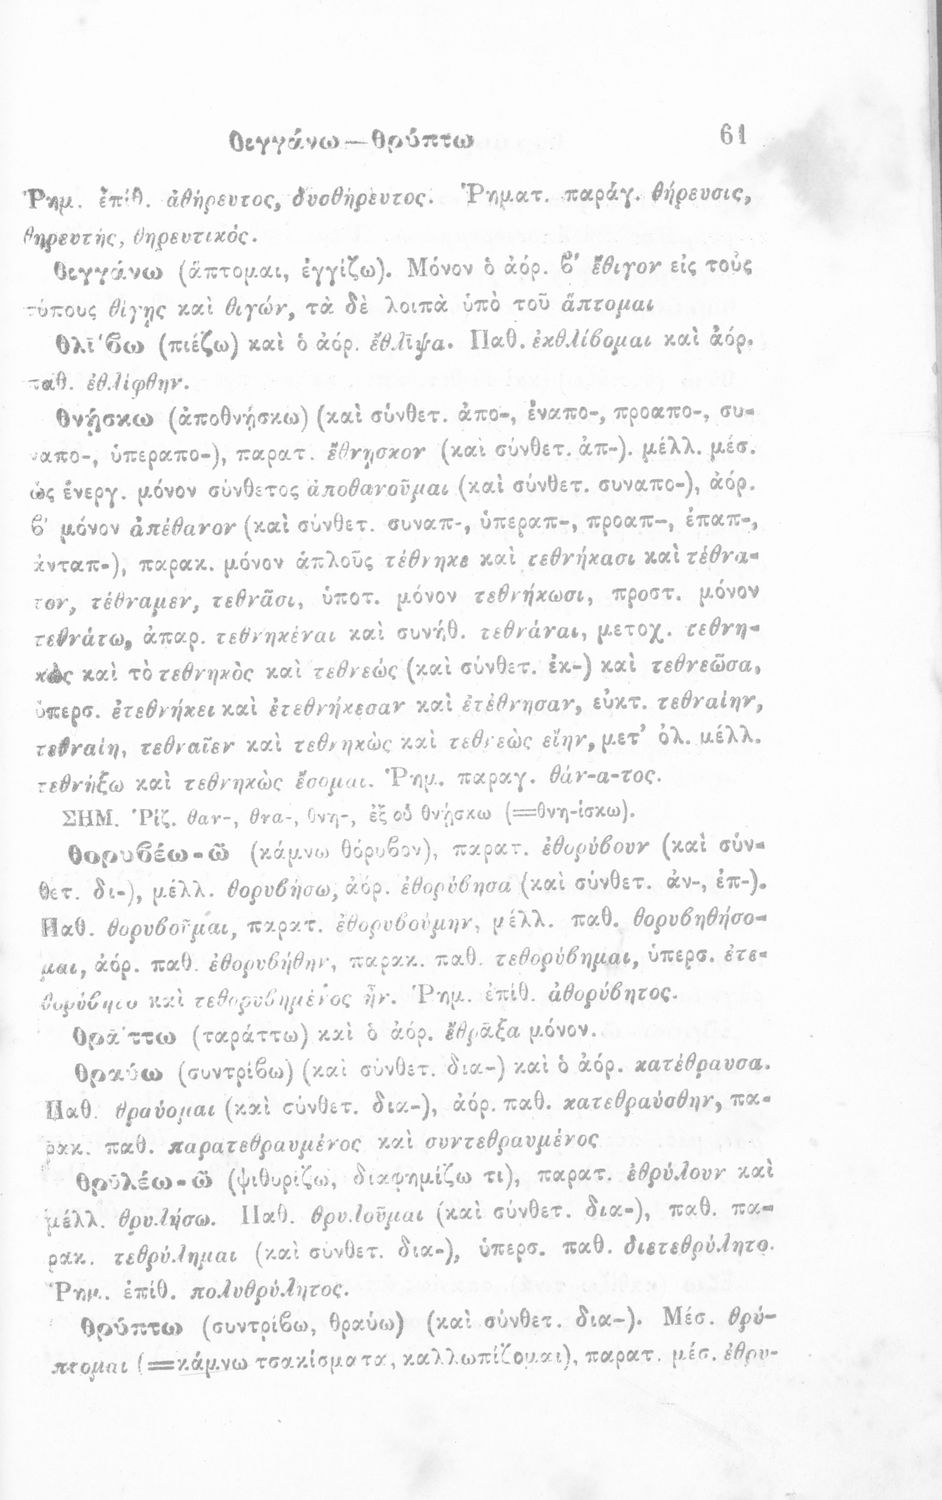 θεγγάνω — θρύπτω 61
Ῥημ. ἐπίθ. ἀθήρευτος, δυσθήρευτος. Ῥηματ. παράγ. θήρευσις,
θηρευτής, θηρευτικός.
θεγγάνω (ἅπτομαι, ἐγγίζω). Μόνον ὁ ἀόρ. ϐ′ ἔθιγον εἰς τοὺς
τύπους θίγῃς καὶ θιγών, τὰ δὲ λοιπὰ ὑπὸ τοῦ ἅπτομαι
θλί̄ϐω (πιέζω) καὶ ὁ ἀόρ. ἔθλῑψα. Παθ. ἐκθλίβομαι καὶ ἀόρ.
παθ. ἐθλίφθην.
θνῄσκω (ἀποθνῄσκω) (καὶ σύνθετ. ἀπο-, ἐναπο-, προαπο-, συ-
ναπο-, ὑπεραπο-), παρατ. ἔθνῃσκον (καὶ σύνθετ. ἀπ-). μέλλ. μέσ.
ὡς ἐνεργ. μόνον σύνθετος ἀποθανοῦμαι (καὶ σύνθετ. συναπο-), ἀόρ.
ϐ′ μόνον ἀπέθανον (καὶ σύνθετ. συναπ-, ὑπεραπ-, προαπ-, ἐπαπ-,
ἀνταπ-), παρακ. μόνον ἁπλοῦς τέθνηκε καὶ τεθνήκασι καὶ τέθνα-
τον, τέθναμεν, τεθνᾶσι, ὑποτ. μόνον τεθνήκωσι, προστ. μόνον
τεθνάτω, ἀπαρ. τεθνηκέναι καὶ συνήθ. τεθνάναι, μετοχ. τεθνη-
κὼς καὶ τὸ τεθνηκὸς καὶ τεθνεώς (καὶ σύνθετ. ἐκ-) καὶ τεθνεῶσα,
ὑπερσ. ἐτεθνήκει καὶ ἐτεθνήκεσαν καὶ ἐτέθνησαν, εὐκτ. τεθναίην,
τεθναίη, τεθναῖεν καὶ τεθνηκὼς καὶ τεθνεὼς εἴην, μετ' ὀλ. μέλλ.
τεθνήξω καὶ τεθνηκὼς ἔσομαι. Ῥημ. παραγ. θάν-α-τος.
ΣΗΜ. Ῥίζ. θαν-, θνα-, θνη-, ἐξ οὗ θνῄσκω (=θνη-ίσκω).
θορυϐέω-ῶ (κάμνω θόρυϐον), παρατ. ἐθορύβουν (καὶ σύν-
θετ. δι-), μέλλ. θορυβήσω, ἀόρ. ἐθορύβησα (καὶ σύνθετ. ἀν-, ἐπ-).
Παθ. θορυβοῦμαι, παρατ. ἐθορυβούμην, μέλλ. παθ. θορυβηθήσο-
μαι, ἀόρ. παθ. ἐθορυβήθην, παρακ. παθ. τεθορύβημαι, ὑπερσ. ἐτε-
θορύβητο καὶ τεθορυβημένος ἦν. Ῥημ. ἐπίθ. ἀθορύβητος.
θρᾱ́ττω (ταράττω) καὶ ὁ ἀόρ. ἔθρᾱξα μόνον.
θραύω (συντρίϐω) (καὶ σύνθετ. δια-) καὶ ὁ ἀόρ. κατέθραυσα.
Παθ. θραύομαι (καὶ σύνθετ. δια-), ἀόρ. παθ. κατεθραύσθην, πα-
ρακ. παθ. παρατεθραυμένος καὶ συντεθραυμένος
θρῡλέω-ῶ (ψιθυρίζω, διαφημίζω τι), παρατ. ἐθρύλουν καὶ
μέλλ. θρυλήσω. Παθ. θρυλοῦμαι (καὶ σύνθετ. δια-), παθ. πα-
ρακ. τεθρύλημαι (καὶ σύνθετ. δια-), ὑπερσ. παθ. διετεθρύλητο.
Ῥημ. ἐπίθ. πολυθρύλητος.
θρύπτω (συντρίϐω, θραύω) (καὶ σύνθετ. δια-). Μέσ. θρύ-
πτομαι (=κάμνω τσακίσματα, καλλωπίζομαι), παρατ. μέσ. ἐθρυ-